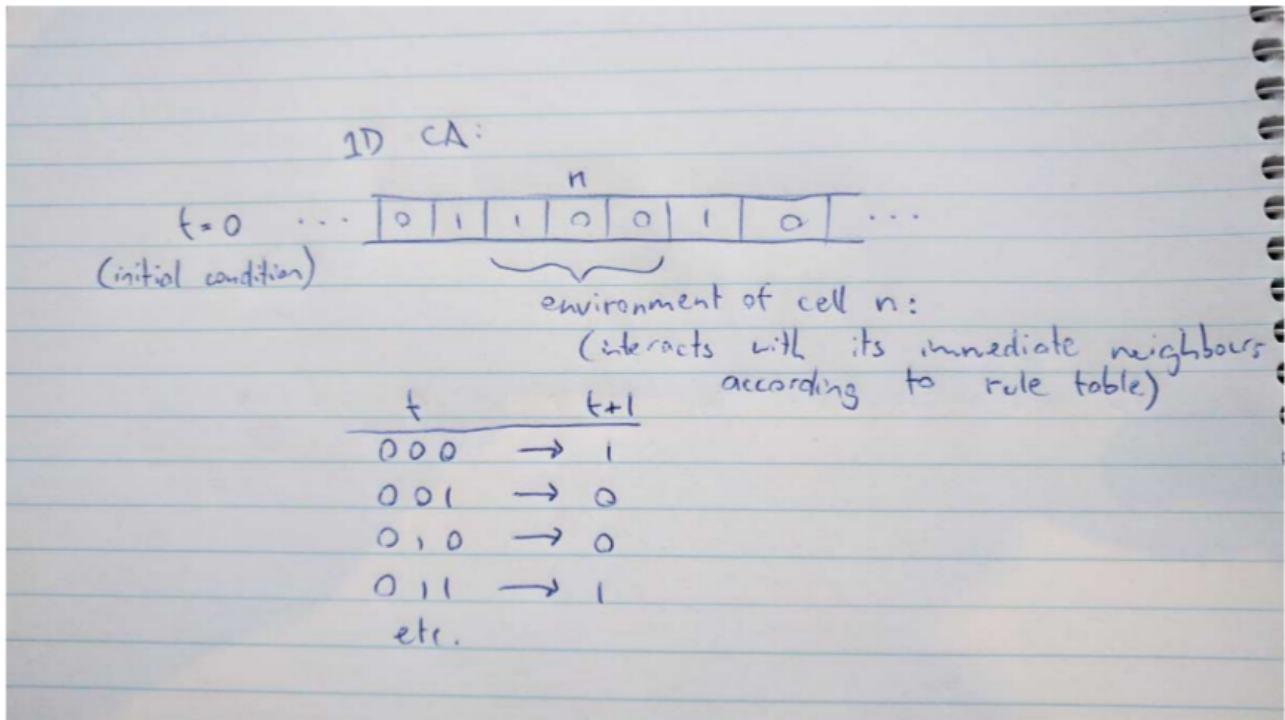 1D CA:
n
t=0 ... 0 1 1 0 0 1 0 ...
(initial condition)
environment of cell n:
(interacts with its immediate neighbours
according to rule table)
t t+1
000 → 1
001 → 0
010 → 0
011 → 1
etc.